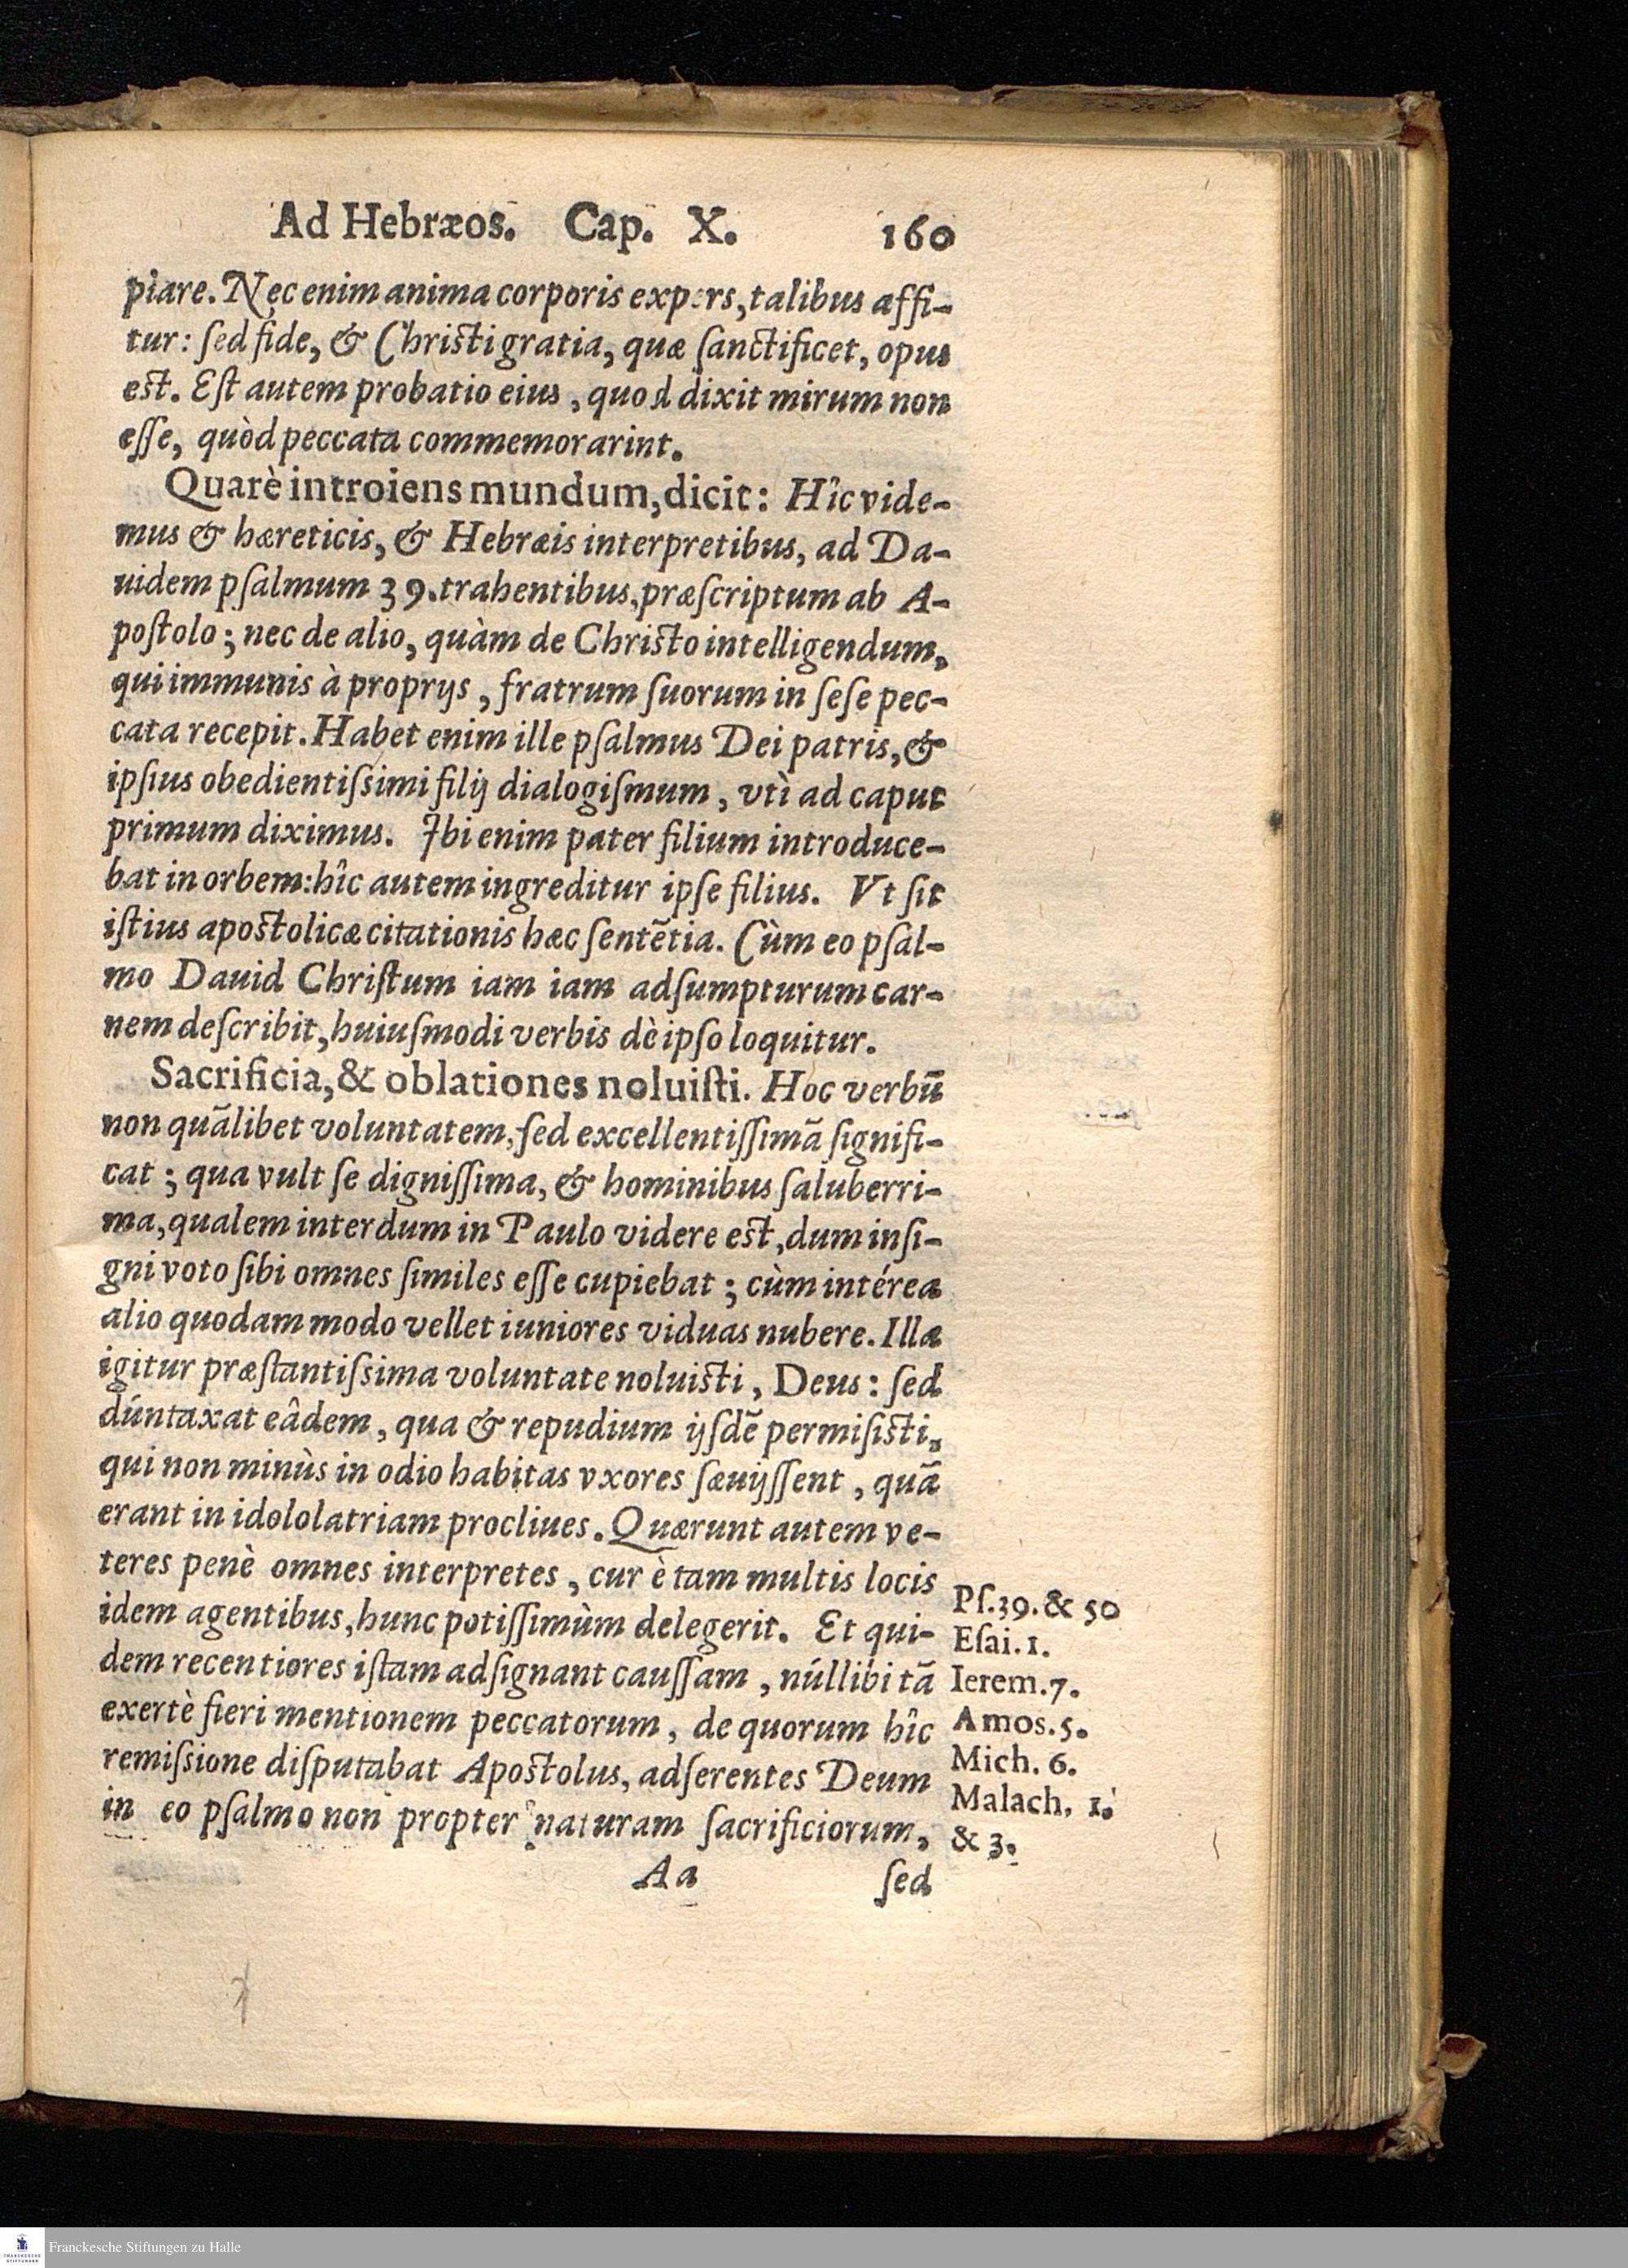 Ad Hebræos. Cap. X. 160
piare. Nec enim anima corporis expers, talibus affi-
tur: ſed fide, & Chriſti gratia, quæ ſanctificet, opus
eſt. Eſt autem probatio eius, quod dixit mirum non
eſſe, quòd peccata commemorarint.
Quarè introiens mundum, dicit: Hîc vide-
mus & hæreticis, & Hebræis interpretibus, ad Da-
uidem pſalmum 39. trahentibus, præſcriptum ab A-
poſtolo; nec de alio, quàm de Chriſto intelligendum,
qui immunis à proprijs, fratrum ſuorum in ſeſe pec-
cata recepit. Habet enim ille pſalmus Dei patris, &
ipſius obedientiſsimi filij dialogiſmum, vtì ad caput
primum diximus. Ibi enim pater filium introduce-
bat in orbem: hîc autem ingreditur ipſe filius. Vt ſit
iſtius apoſtolicæ citationis hæc ſentẽtia. Cùm eo pſal-
mo Dauid Chriſtum iam iam adſumpturum car-
nem deſcribit, huiuſmodi verbis dè ipſo loquitur.
Sacrificia, & oblationes noluiſti. Hoc verbũ
non quãlibet voluntatem, ſed excellentiſſimã ſignifi-
cat; qua vult ſe digniſſima, & hominibus ſaluberri-
ma, qualem interdum in Paulo videre eſt, dum inſi-
gni voto ſibi omnes ſimiles eſſe cupiebat; cùm intérea
alio quodam modo vellet iuniores viduas nubere. Illa
igitur præſtantiſsima voluntate noluiſti, Deus: ſed
dúntaxat eâdem, qua & repudium ijſdẽ permiſiſti,
qui non minùs in odio habitas vxores ſæuijſſent, quã
erant in idololatriam procliues. Quærunt autem ve-
teres penè omnes interpretes, cur è tam multis locis
idem agentibus, hunc potiſſimùm delegerit. Et qui-
dem recentiores iſtam adſignant cauſſam, núllibi tã
exertè fieri mentionem peccatorum, de quorum hîc
remiſsione diſputabat Apoſtolus, adſerentes Deum
in eo pſalmo non propter naturam ſacrificiorum,
Aa ſed
Pſ. 39. & 50
Eſai. 1.
Ierem. 7.
Amos. 5.
Mich. 6.
Malach. 1.
& 3.
FRANCKESCHE STIFTUNGEN
Franckesche Stiftungen zu Halle